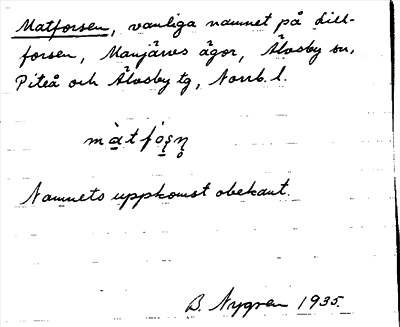 Matforsen, vanliga namnet på Lill-
forsen, Manjärvs ägor, Älvsby sn,
Piteå och Älvsby tg, Norrb. l.
màtfo̱ʂn̥
Namnets uppkomst obekant.
B. Nygren 1935.